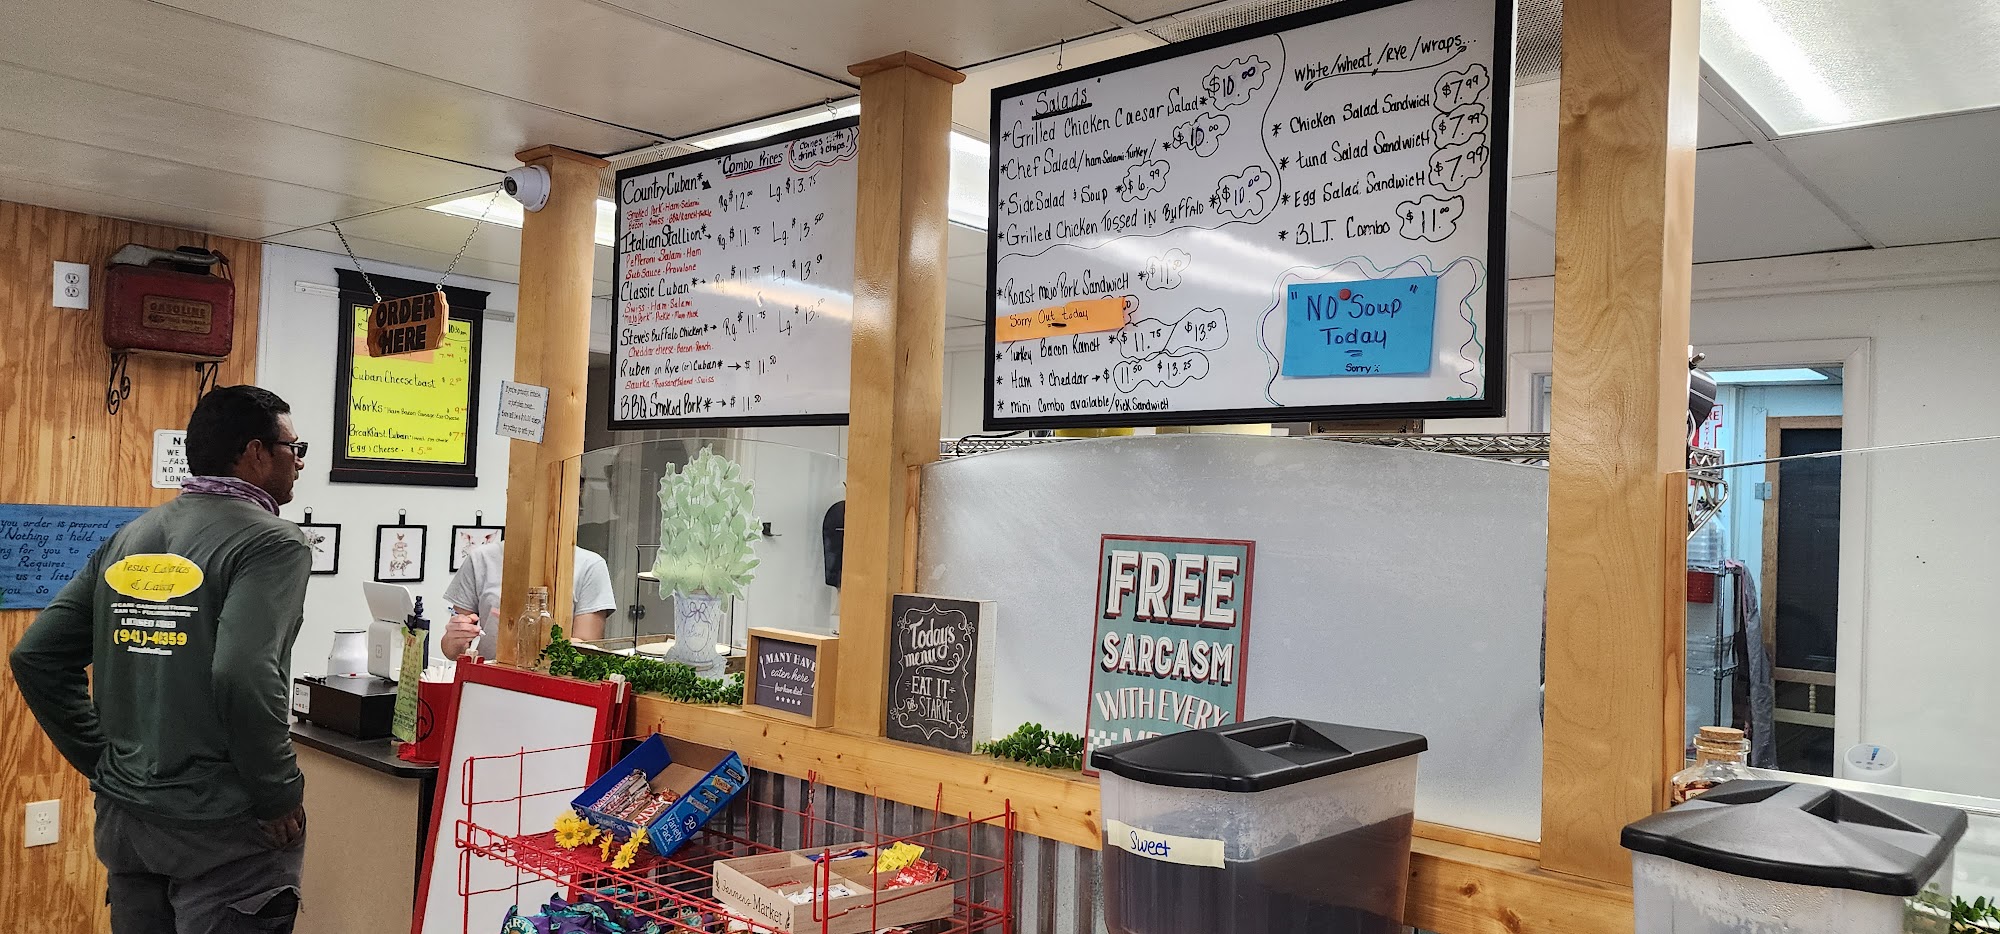 GASOLINE
ORDER
HERE
Cuban Cheese toast $2.50
Works
Breakfast Cuban $7.
Egg & Cheese - $5.
NO
WE
FAST
NO MA
LONG
you order is prepared
Nothing is held
ng for you to
Requires
us a
you So
Jesus
& Lawn
LICENSED AND
(941)-
"Combo Prices" comes with
drink & chips!
Country Cuban* Rg $12.00 Lg. $13.75
Smoked Pork-Ham-Salami
Bacon-Swiss-BBQ/Ranch-Pickle
Italian Stallion* Rg. $11.75 Lg. $13.50
Pepperoni Salami-Ham
Sub Sauce-Provalone
Classic Cuban* Rg $11.75 Lg. $13.50
Swiss-Ham-Salami
"Mojo Pork"-Pickle-
Steve's Buffalo Chicken* Rg. $11.75 Lg. $13.50
Cheddar cheese-Bacon-Ranch
Ruben on Rye (or) Cuban* $11.50
Saurkr-Thousand Island-Swiss
BBQ Smoked Pork* $11.50
"Salads
*Grilled Chicken Caesar Salad* $10.00
*Chef Salad/ham Salami-Turkey/* $10.00
*Side Salad & Soup* $6.99
*Grilled Chicken Tossed in Buffalo* $10.00
*Roast mojo Pork Sandwich* $11.50
Sorry Out today
*Turkey Bacon Ranch* $11.75 $13.50
*Ham & Cheddar $11.50 $13.25
*mini Combo available/Pick Sandwich
White/wheat/Rye/wraps...
*Chicken Salad Sandwich $7.99
*tuna Salad Sandwich $7.99
*Egg Salad Sandwich $7.99
*B.L.T. Combo $11.00
"NO Soup"
Today
Sorry
MANY HAVE
eaten here
few have died
Today's
menu
EAT IT
or STARVE
FREE
SARCASM
WITH EVERY
30
Variety
Pack
Farmers Market
Sweet